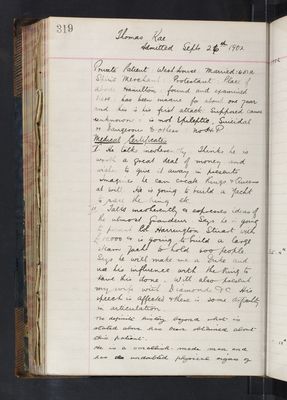 319
Thomas Rae
Admitted Septr 26th 1902
Private Patient West House. Married. 40
Spirit Merchant. Protestant. Place of
abode Hamilton. found and examined
here. has been insane for about one year
and this is his first attack. Supposed cause
unknown. is not Epileptic, Suicidal
or Dangerous to others. no H.P.
Medical Certificates
I He talks incoherently. Thinks he is
worth a great deal of money and
wishes to give it away in presents.
imagines he can create Kings & Queens
at will. He is going to build a Yacht
to race the King etc
II Talks incoherently & expresses ideas of
the utmost Grandeur. Says he is going
to present Harrington Stuart with
& is going to build a large
Steam Yacht to hold 200 people
Says he will make me a Duke and
use his influence with the King to
have this done. Will also present
my wife with Diamonds &c His
speech is affected & there is some difficulty
in articulation.
No definite history beyond what is
stated above has been obtained about
this patient.
He is a well made man and
has undoubted physical signs of